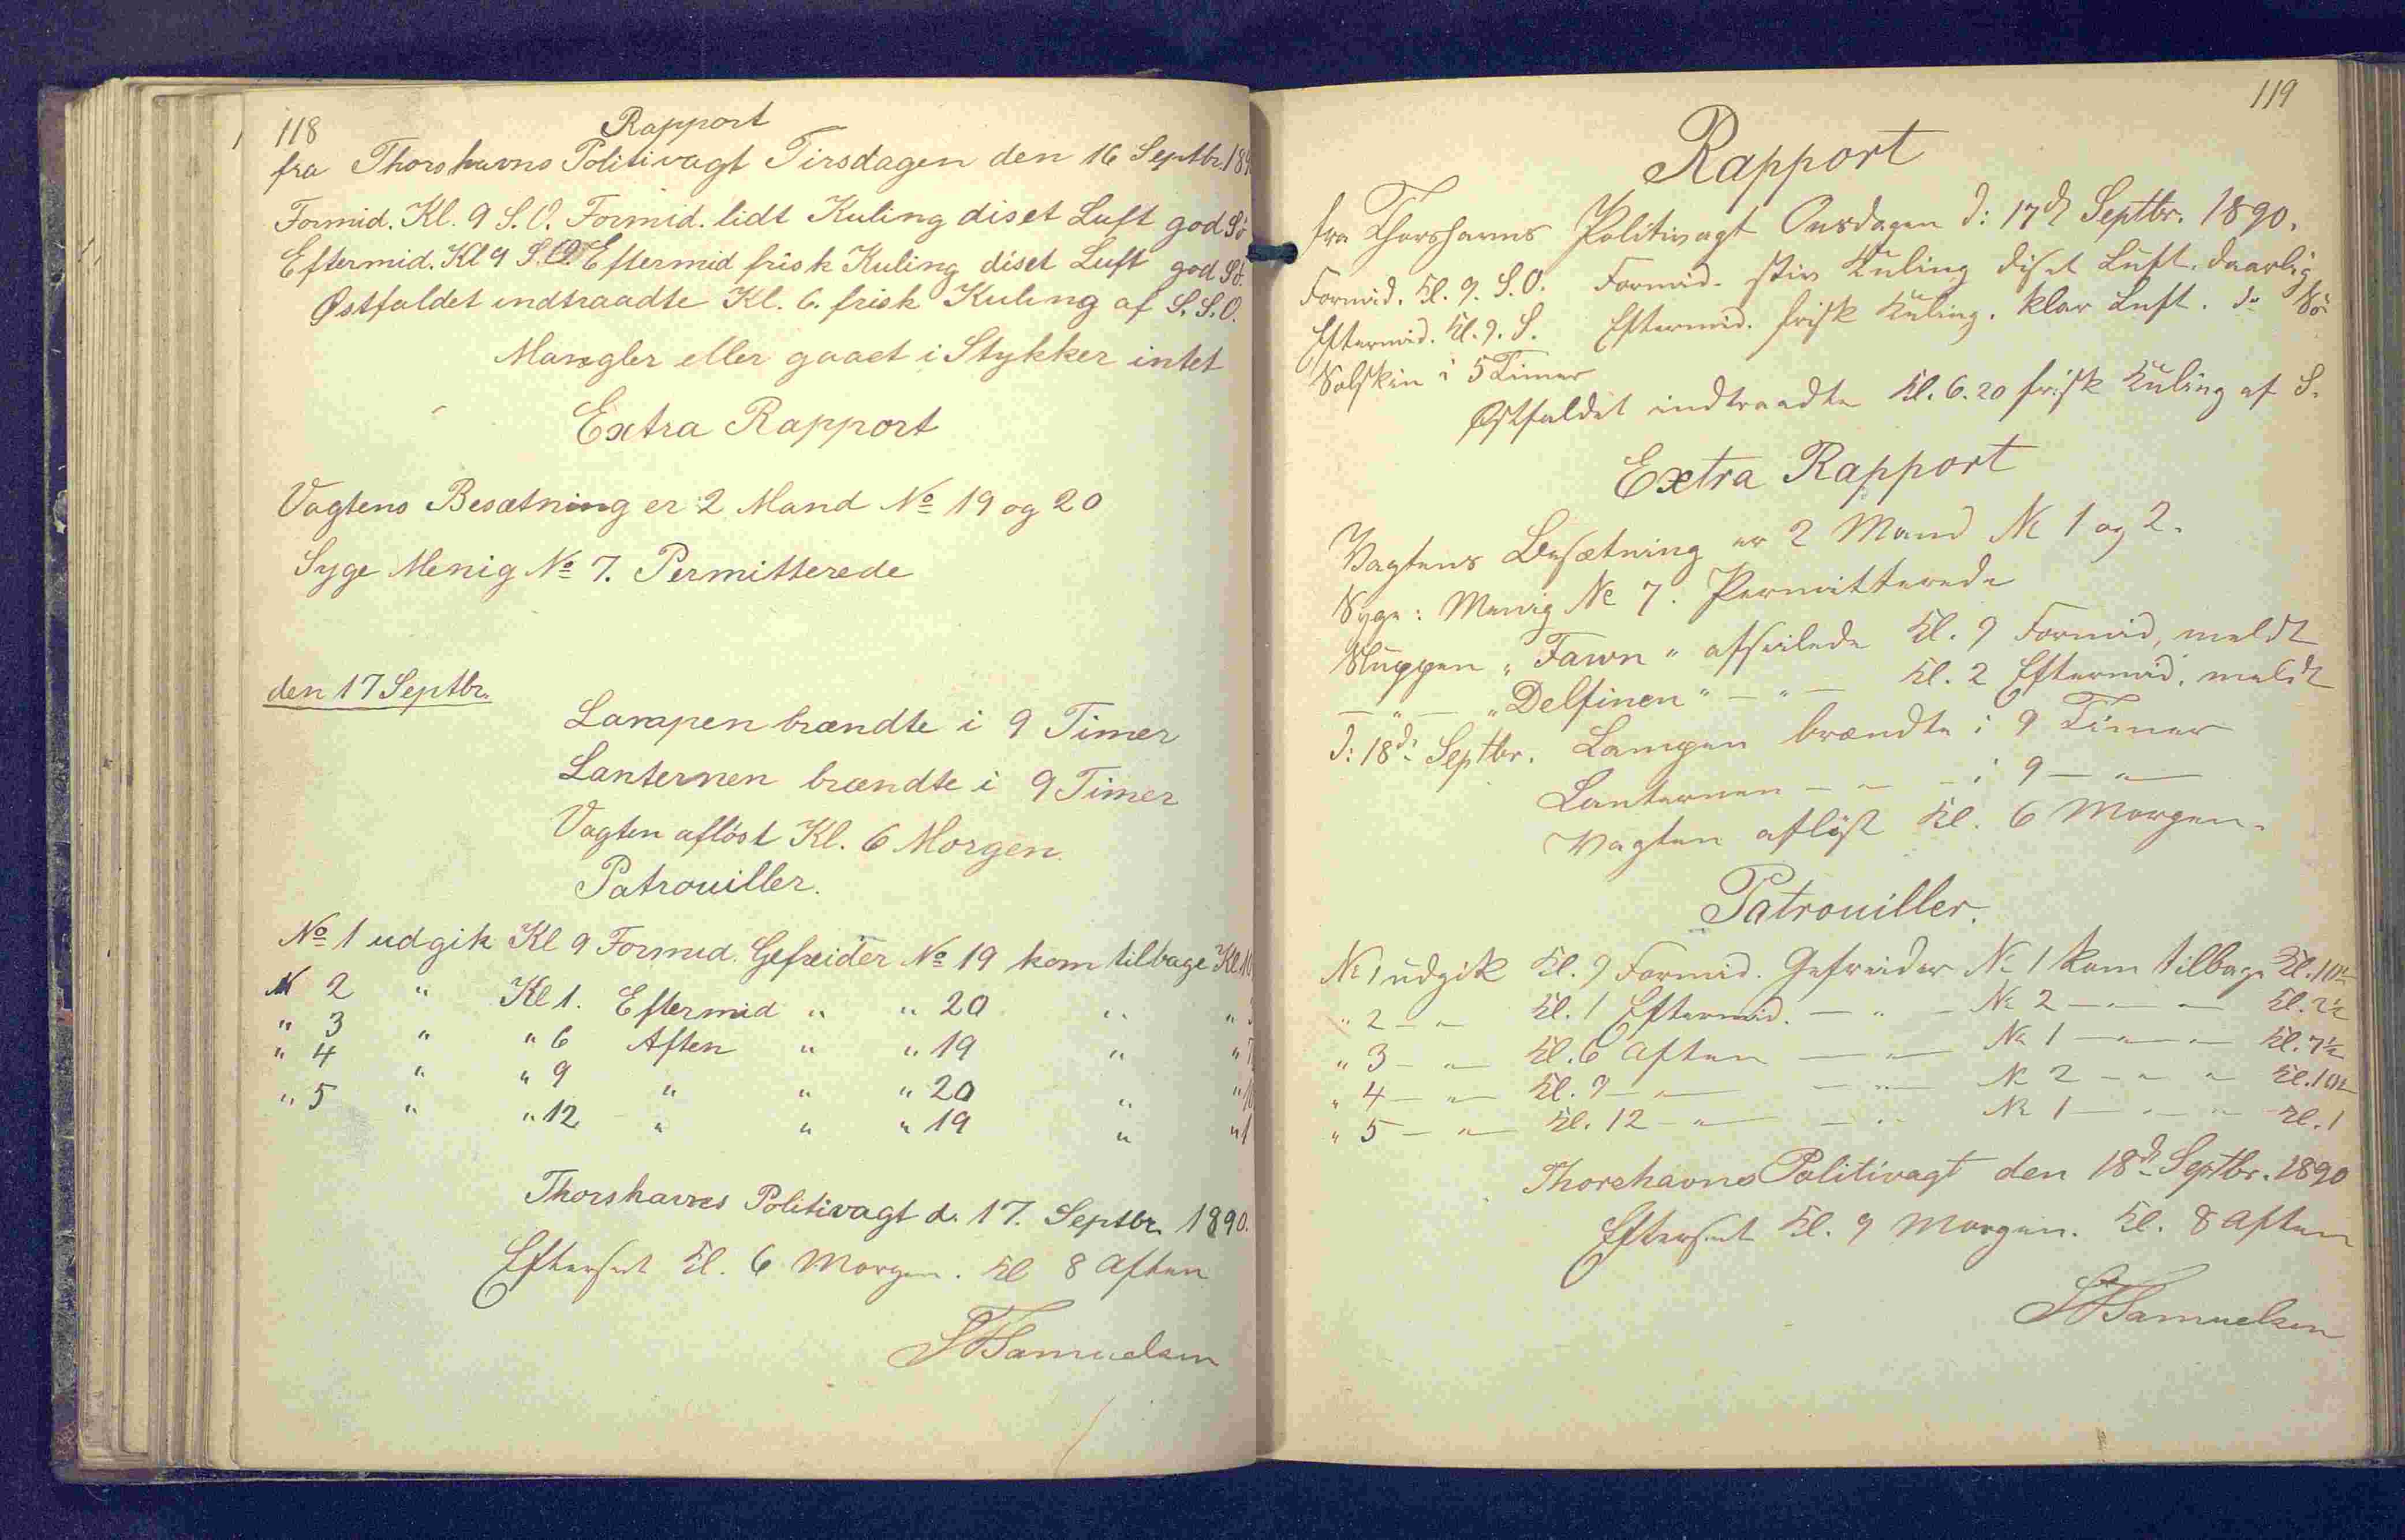 118
Rapport
fra Thorshavns Politivagt Tirsdagen den 16 Septbr. 189
Formid. Kl. 9 S.O. Formid. lidt Kuling diset Luft god Sö
Eftermid. Kl 9 S.O. Eftermid frisk Kuling diset Luft god Sö.
Østfaldet indtraadte Kl. 6. frisk Kuling af S.S.O.
Mangler eller gaaet i Stykker intet
Extra Rapport
Vagtens Besætning er 2 Mand No 19 og 20
Syge Menig No 7. Permitterede
den 17 Septbr.
Lampen brændte i 9 Timer
Lanternen brændte i 9 Timer
Vagten aflöst Kl. 6 Morgen.
Patrouiller.
No 1 udgik Kl 9 Formid. Gefreider No 19 kom tilbage Kl 10
N 2 " Kl 1. Eftermid " " 20 " "
" 3 " " 6 Aften " " 19 " " 7
" 4 " " 9 " " " 20 " " 10
" 5 " " 12 " " " 19 " " 1
Thorshavns Politivagt d. 17. Septbr. 1890.
Efterset Kl. 6 Morgen. Kl 8 Aften
Samuelsen
119
Rapport
fra Thorshavns Politivagt Onsdagen d: 17d Septbr. 1890.
Formid. Kl. 9. S.O. Formid. stiv Kuling diset Luft. daarlig
Eftermid. Kl. 9. S. Eftermid. frisk Kuling. klar Luft. do Sö
Solskin i 5 Timer
Østfaldet indtraadte Kl. 6.20 frisk Kuling af S.
Extra Rapport
Vagtens Besætning er 2 Mand No 1 og 2.
Syge: Menig No 7. Permitterede
Sluppen "Fawn" afseilede Kl. 9 Formid, meldt
— " — "Delfinen" — " — Kl. 2 Eftermid. meldt
d: 18d: Septbr. Lampen brændte i 9 Timer
Lanternen — " — i 9 — " —
Vagten aflöst Kl. 6 Morgen.
Patrouiller.
No 1 udgik Kl. 9 Formid. Gefreider No 1 kom tilbage Kl. 10½
" 2 — " Kl. 1 Eftermid. — " — No 2 — " — " — Kl. 2½
" 3 — " — Kl. 6 Aften — " — No 1 — " — " — Kl. 7½
" 4 — " — Kl. 9 — " — — " — No 2 — " — " Kl. 10½
" 5 — " — Kl. 12 — " — — " — No 1 — " — " — Kl. 1
Thorshavns Politivagt den 18d Septbr. 1890
Efterset Kl. 9 Morgen. Kl. 8 Aften
Samuelsen